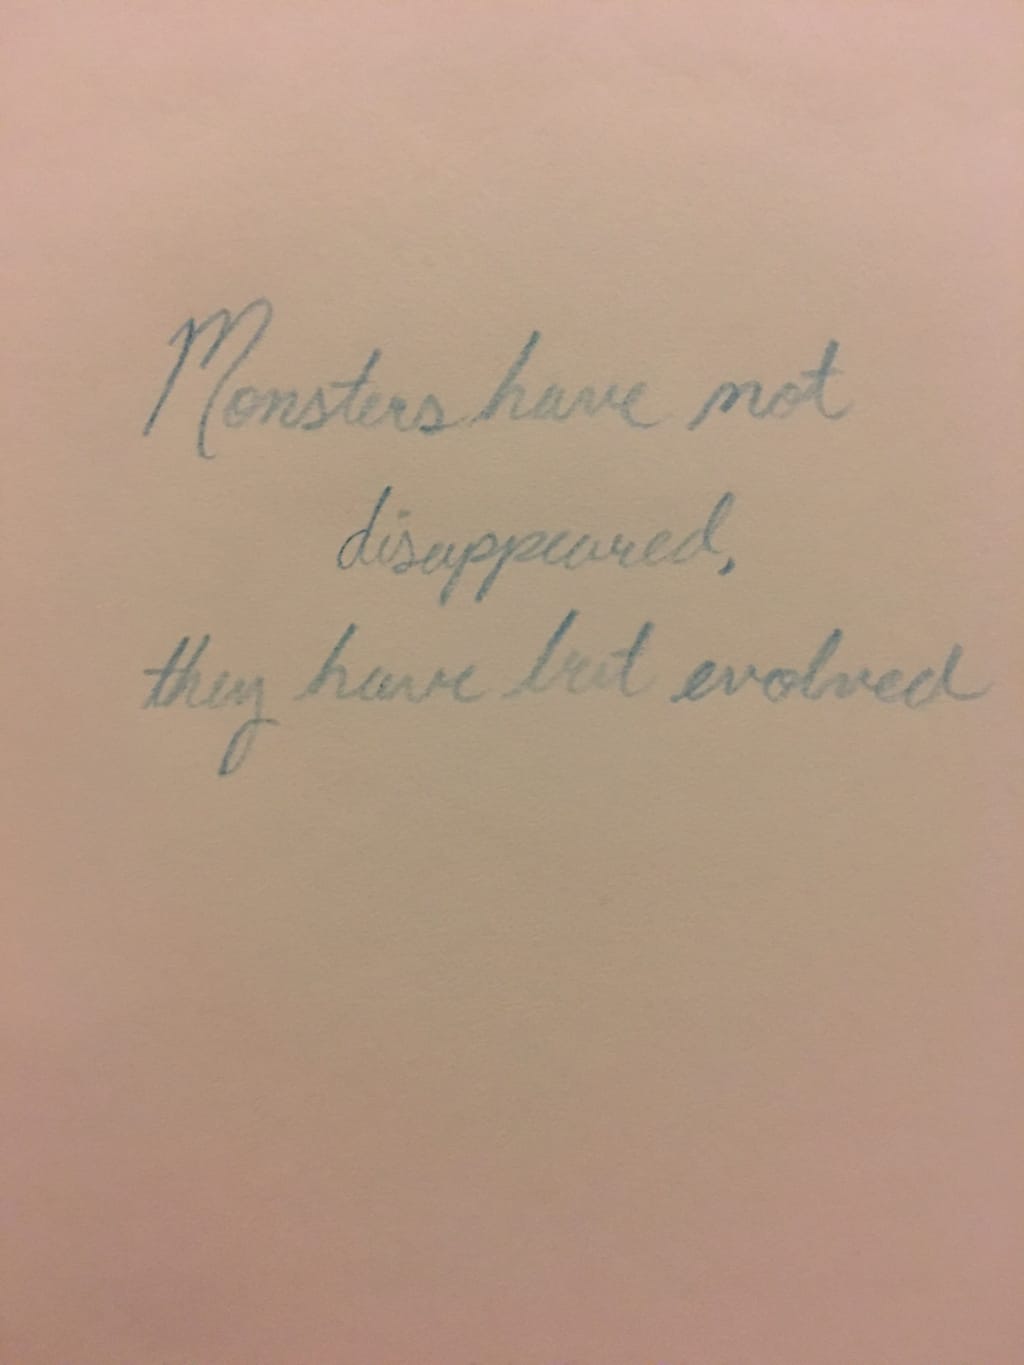 Monsters have not
disappeared,
they have but evolved